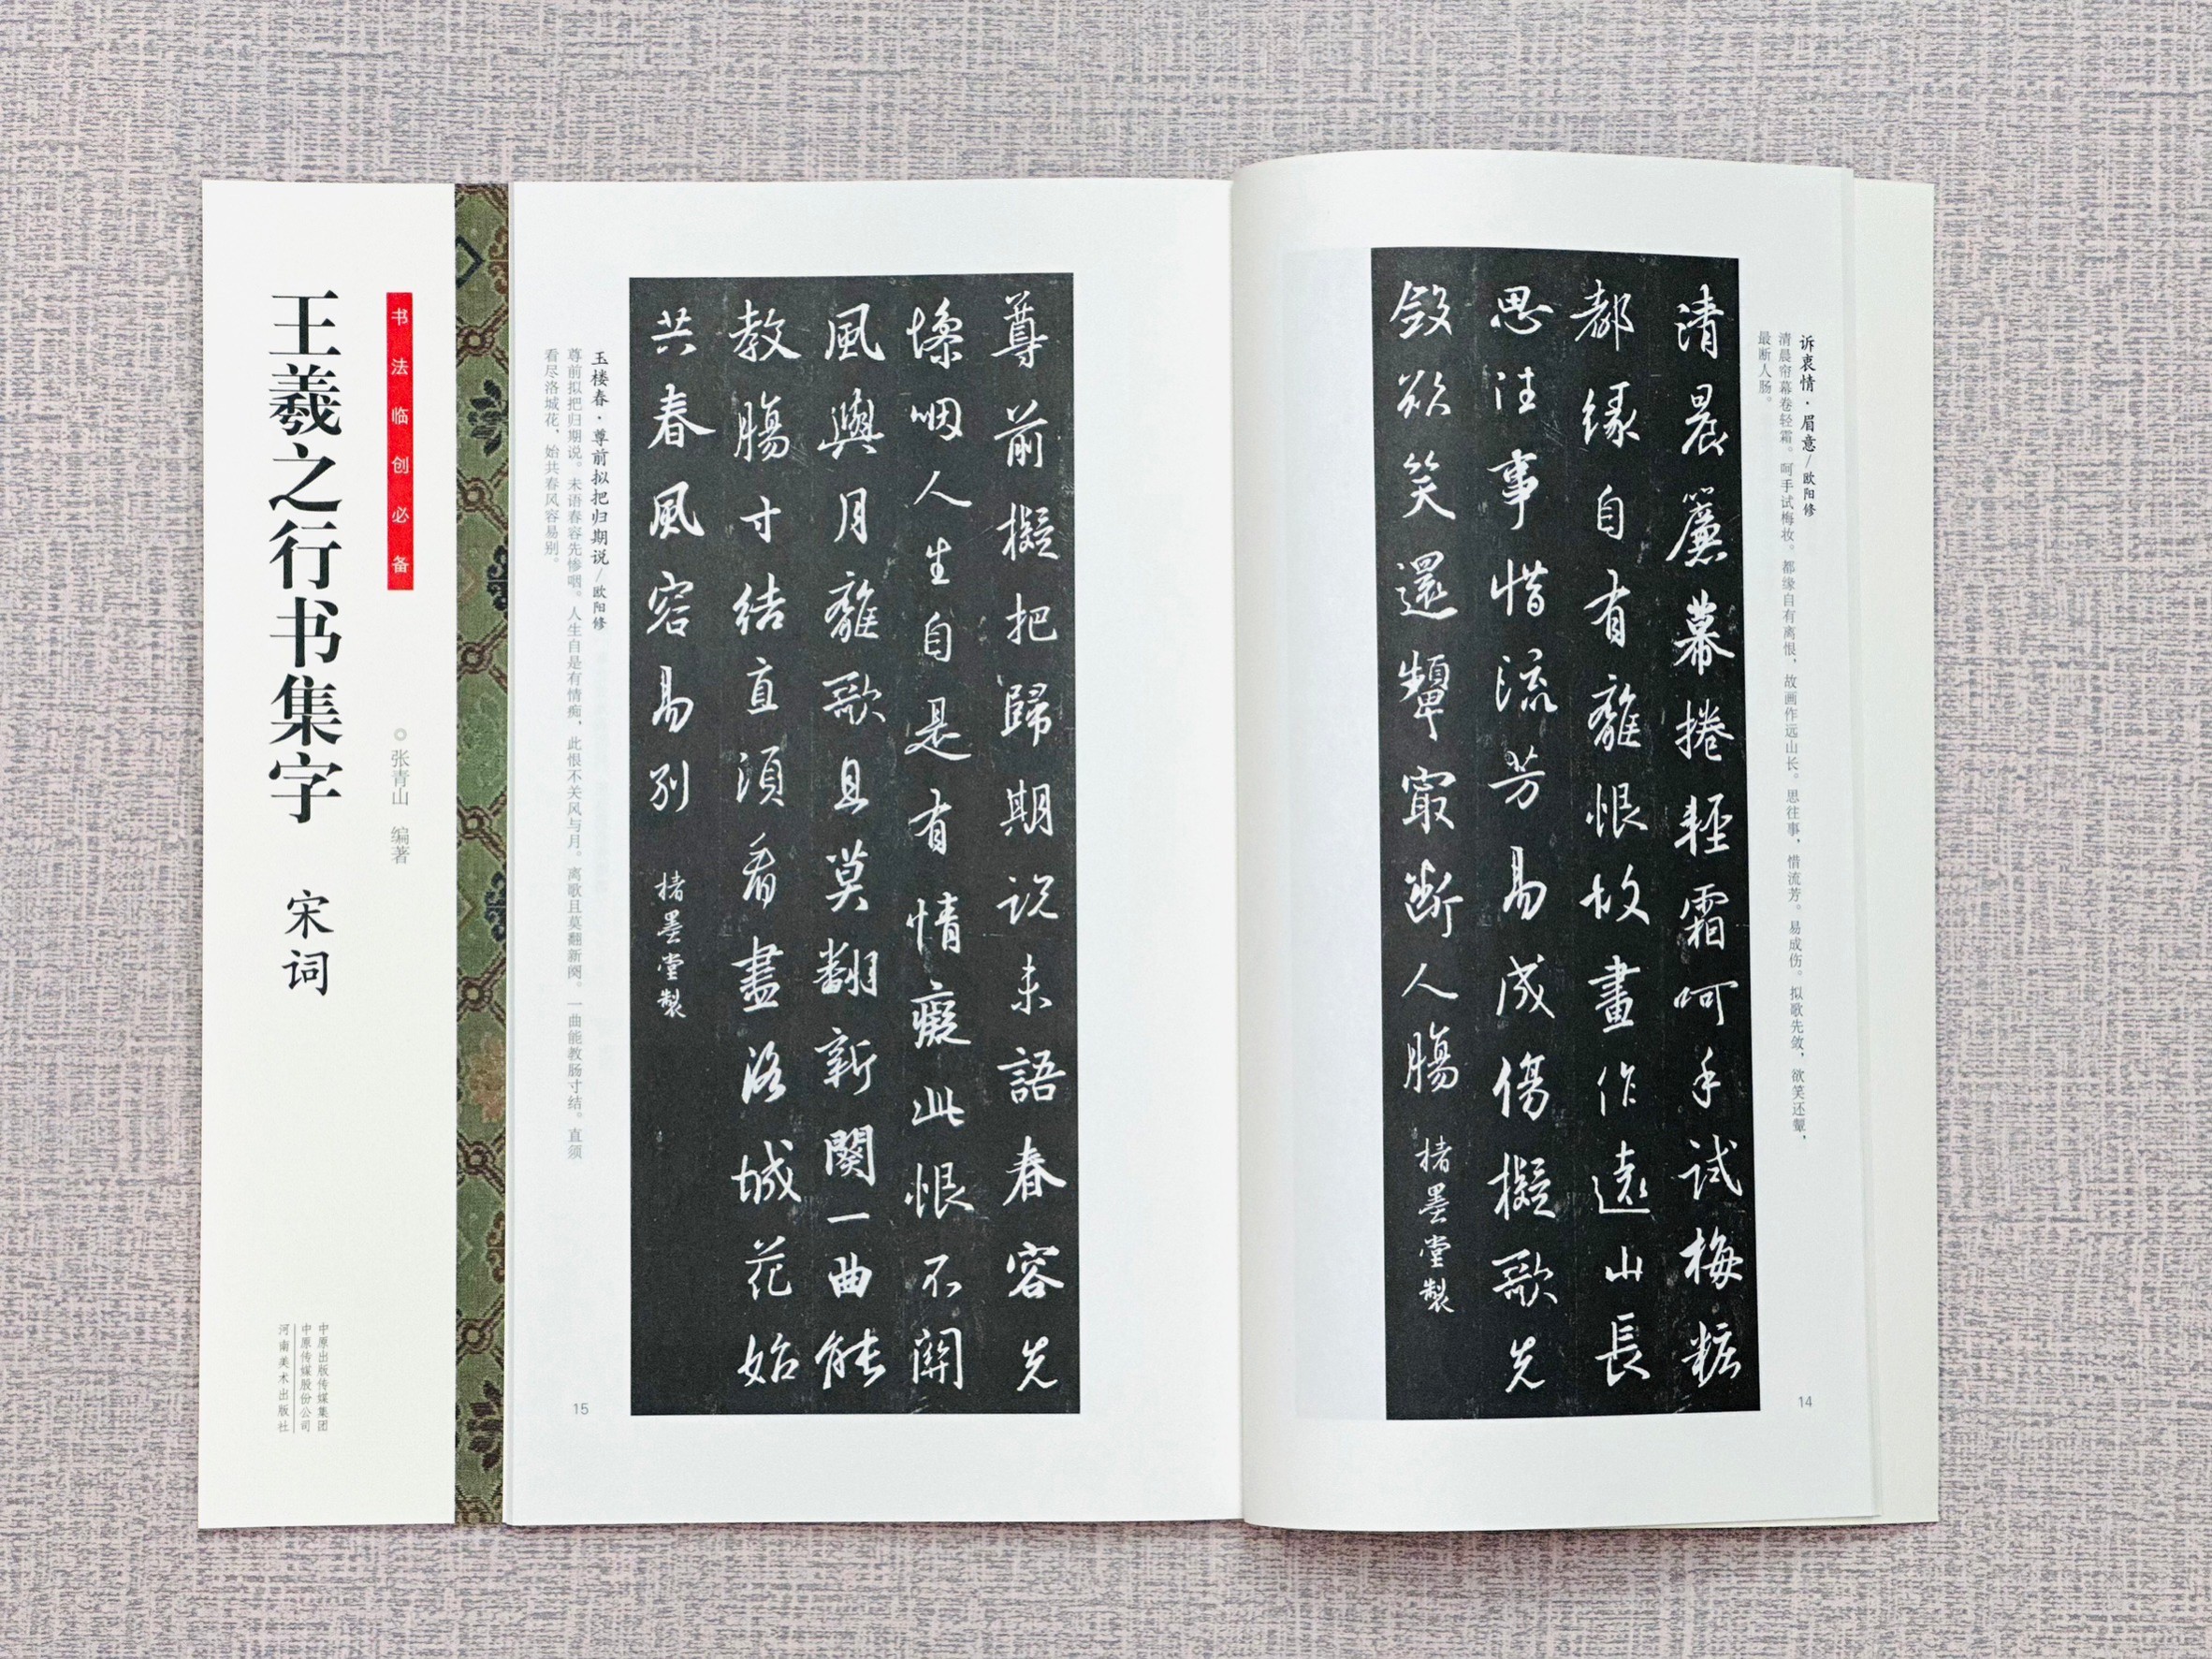 书法临创必备
王羲之行书集字 宋词
张青山 编著
中原出版传媒集团
中原传媒股份公司
河南美术出版社
诉衷情·眉意/欧阳修
清晨帘幕卷轻霜。呵手试梅妆。都缘自有离恨，故画作远山长。思往事，惜流芳。易成伤。拟歌先敛，欲笑还颦，
最断人肠。
清晨簾幕捲輕霜呵手试梅粧
都缘自有離恨故畫作遠山長
思往事惜流芳易成傷擬歌先
斂欲笑還顰最断人腸
楮墨堂製
14
玉楼春·尊前拟把归期说/欧阳修
尊前拟把归期说。未语春容先惨咽。人生自是有情痴，此恨不关风与月。离歌且莫翻新阕。一曲能教肠寸结。直须
看尽洛城花，始共春风容易别。
尊前擬把歸期说未語春容先
慘咽人生自是有情癡此恨不關
風與月離歌且莫翻新闋一曲能
教腸寸结直須看盡洛城花始
共春風容易别
楮墨堂製
15